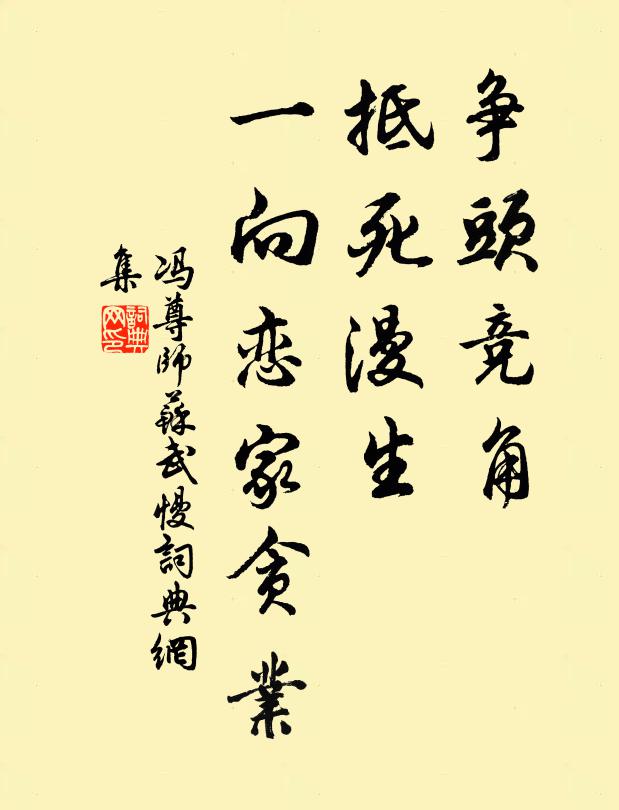 争頭竞角
抵死漫生
一向恋家贪業
冯尊師蘇武慢詞典網
集
詞典
网印